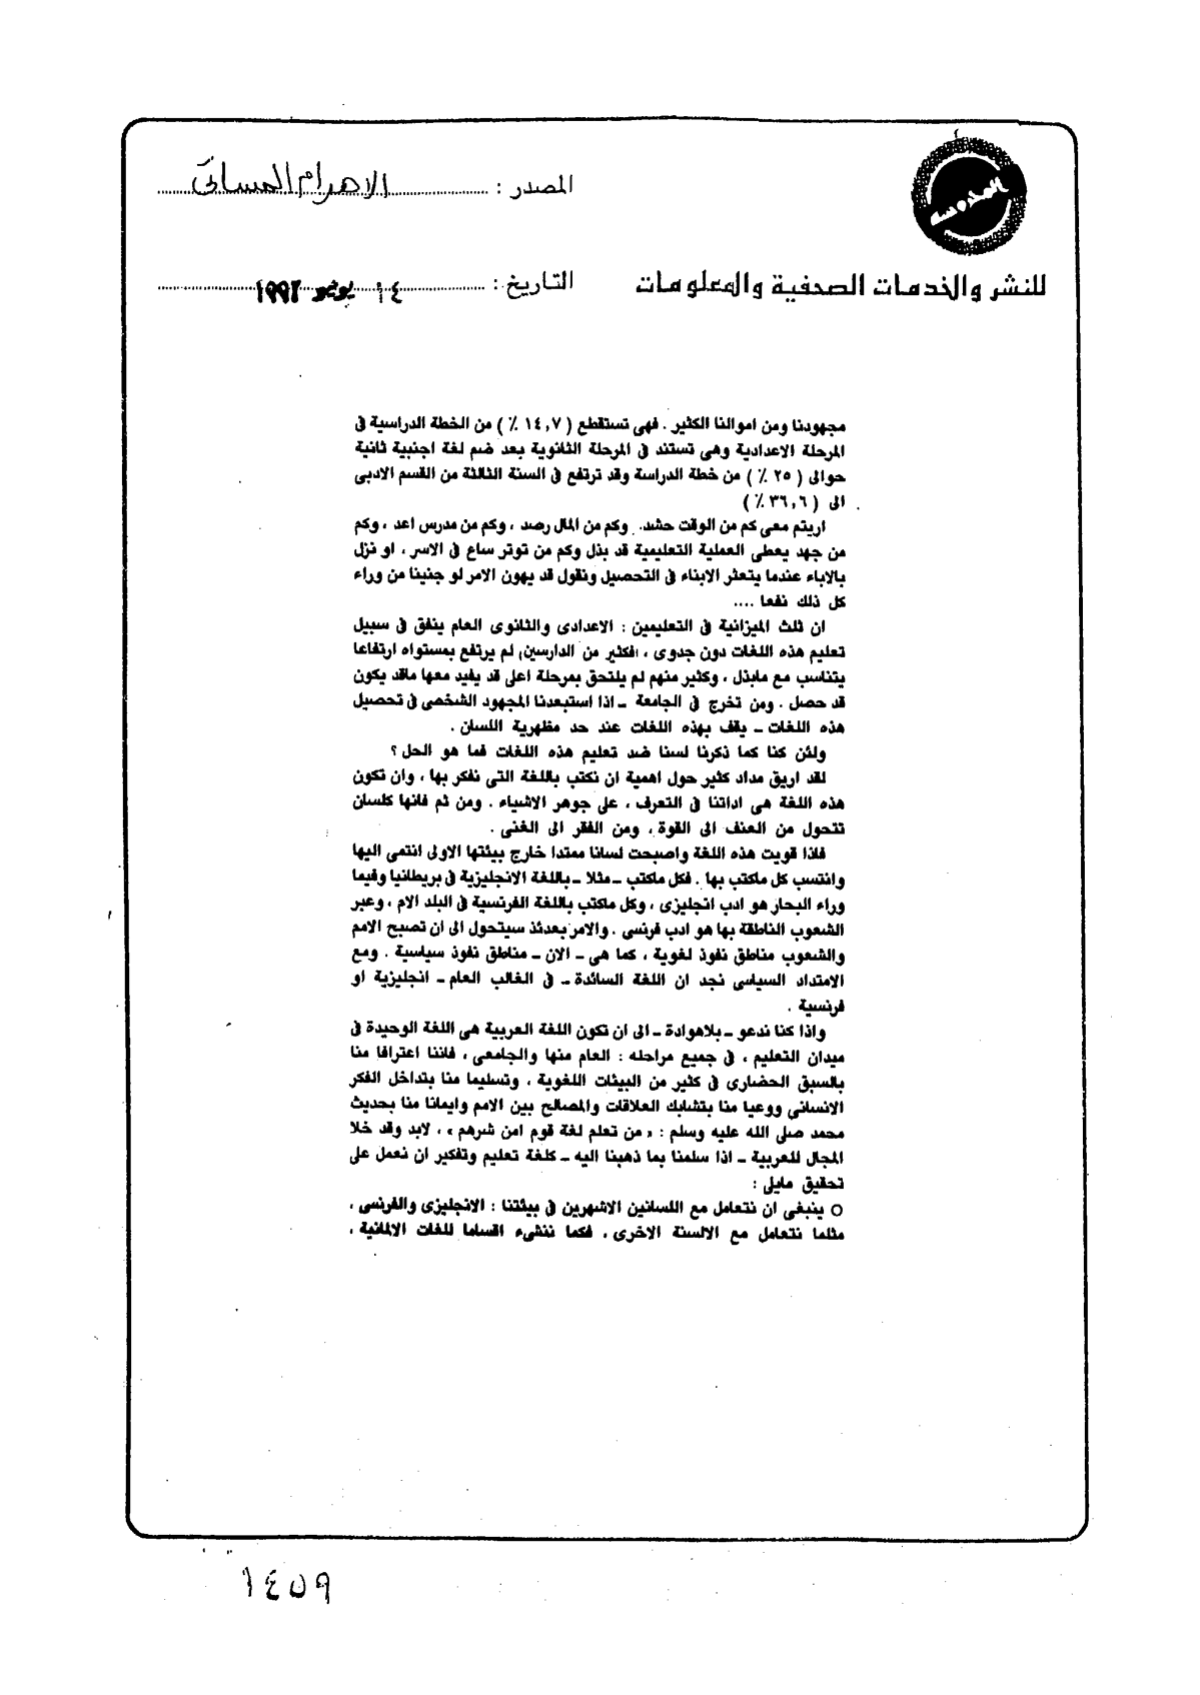 المصدر : الاهرام المسائى
للنشر والخدمات الصحفية والمعلومات
التاريخ : ١٤ يونيو ١٩٩٢
مجهودنا ومن اموالنا الكثير . فهى تستقطع ( ١٤,٧ ٪ ) من الخطة الدراسية فى
المرحلة الاعدادية وهى تستند فى المرحلة الثانوية بعد ضم لغة اجنبية ثانية
حوالى ( ٢٥ ٪ ) من خطة الدراسة وقد ترتفع فى السنة الثالثة من القسم الادبى
الى ( ٣٦,٦ ٪ )
اريتم معى كم من الوقت حشد . وكم من المال رصد ، وكم من مدرس اعد ، وكم
من جهد يعطى العملية التعليمية قد بذل وكم من توتر ساع فى الاسر ، او نزل
بالاباء عندما يتعثر الابناء فى التحصيل ونقول قد يهون الامر لو جنينا من وراء
كل ذلك نفعا ....
ان ثلث الميزانية فى التعليمين : الاعدادى والثانوى العام ينفق فى سبيل
تعليم هذه اللغات دون جدوى ، فكثير من الدارسين لم يرتفع بمستواه ارتفاعا
يتناسب مع مابذل ، وكثير منهم لم يلتحق بمرحلة اعلى قد يفيد معها ماقد يكون
قد حصل . ومن تخرج فى الجامعة ـ اذا استبعدنا المجهود الشخصى فى تحصيل
هذه اللغات ـ يقف بهذه اللغات عند حد مظهرية اللسان .
ولئن كنا كما ذكرنا لسنا ضد تعليم هذه اللغات فما هو الحل ؟
لقد اريق مداد كثير حول اهمية ان نكتب باللغة التى نفكر بها ، وان تكون
هذه اللغة هى اداتنا فى التعرف ، على جوهر الاشياء . ومن ثم فانها كلسان
تتحول من العنف الى القوة ، ومن الفقر الى الغنى .
فاذا قويت هذه اللغة واصبحت لسانا ممتدا خارج بيئتها الاولى انتمى اليها
وانتسب كل ماكتب بها . فكل ماكتب ـ مثلا ـ باللغة الانجليزية فى بريطانيا وفيما
وراء البحار هو ادب انجليزى ، وكل ماكتب باللغة الفرنسية فى البلد الام ، وعبر
الشعوب الناطقة بها هو ادب فرنسى . والامر بعدئذ سيتحول الى ان تصبح الامم
والشعوب مناطق نفوذ لغوية ، كما هى ـ الان ـ مناطق نفوذ سياسية . ومع
الامتداد السياسى نجد ان اللغة السائدة ـ فى الغالب العام ـ انجليزية او
فرنسية .
واذا كنا ندعو ـ بلاهوادة ـ الى ان تكون اللغة العربية هى اللغة الوحيدة فى
ميدان التعليم ، فى جميع مراحله : العام منها والجامعى ، فاننا اعترافا منا
بالسبق الحضارى فى كثير من البيئات اللغوية ، وتسليما منا بتداخل الفكر
الانسانى ووعيا منا بتشابك العلاقات والمصالح بين الامم وايمانا منا بحديث
محمد صلى الله عليه وسلم : « من تعلم لغة قوم امن شرهم » ، لابد وقد خلا
المجال للعربية ـ اذا سلمنا بما ذهبنا اليه ـ كلغة تعليم وتفكير ان نعمل على
تحقيق مايلى :
○ ينبغى ان نتعامل مع اللسانين الاشهرين فى بيئتنا : الانجليزى والفرنسى ،
مثلما نتعامل مع الالسنة الاخرى ، فكما ننشىء اقساما للغات الالمانية ،
١٤٥٩